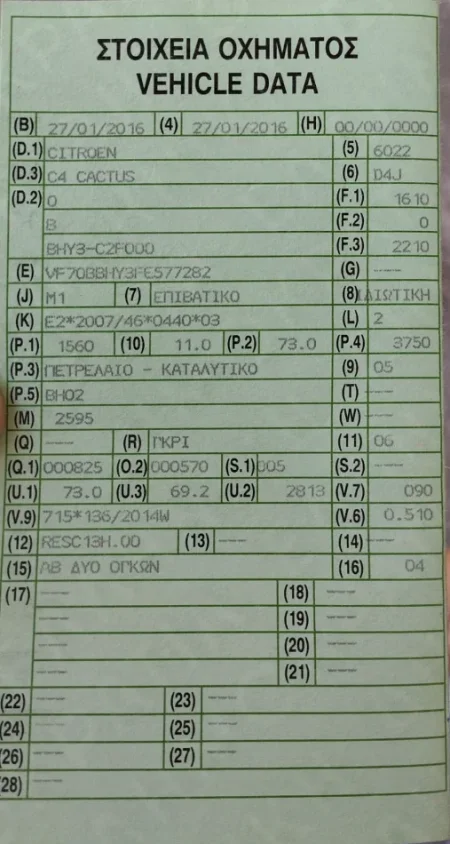 ΣΤΟΙΧΕΙΑ ΟΧΗΜΑΤΟΣ
VEHICLE DATA
(B) 27/01/2016 (4) 27/01/2016 (H) 00/00/0000
(D.1) CITROEN (5) 6022
(D.3) C4 CACTUS (6) D4J
(D.2) 0 (F.1) 1610
B (F.2) 0
BHY3-C2F000 (F.3) 2210
(E) VF70BBHY3FE577282 (G) ----
(J) M1 (7) ΕΠΙΒΑΤΙΚΟ (8) ΙΔΙΩΤΙΚΗ
(K) E2*2007/46*0440*03 (L) 2
(P.1) 1560 (10) 11.0 (P.2) 73.0 (P.4) 3750
(P.3) ΠΕΤΡΕΛΑΙΟ - ΚΑΤΑΛΥΤΙΚΟ (9) 05
(P.5) BH02 (T) ----
(M) 2595 (W) ----
(Q) ---- (R) ΓΚΡΙ (11) 06
(Q.1) 000825 (O.2) 000570 (S.1) 005 (S.2) ----
(U.1) 73.0 (U.3) 69.2 (U.2) 2813 (V.7) 090
(V.9) 715*136/2014W (V.6) 0.510
(12) RESC13H.00 (13) ---- (14) ----
(15) ΑΒ ΔΥΟ ΟΓΚΩΝ (16) 04
(17) ---- (18) ----
---- (19) ----
---- (20) ----
---- (21) ----
(22) ---- (23) ----
(24) ---- (25) ----
(26) ---- (27) ----
(28) ----